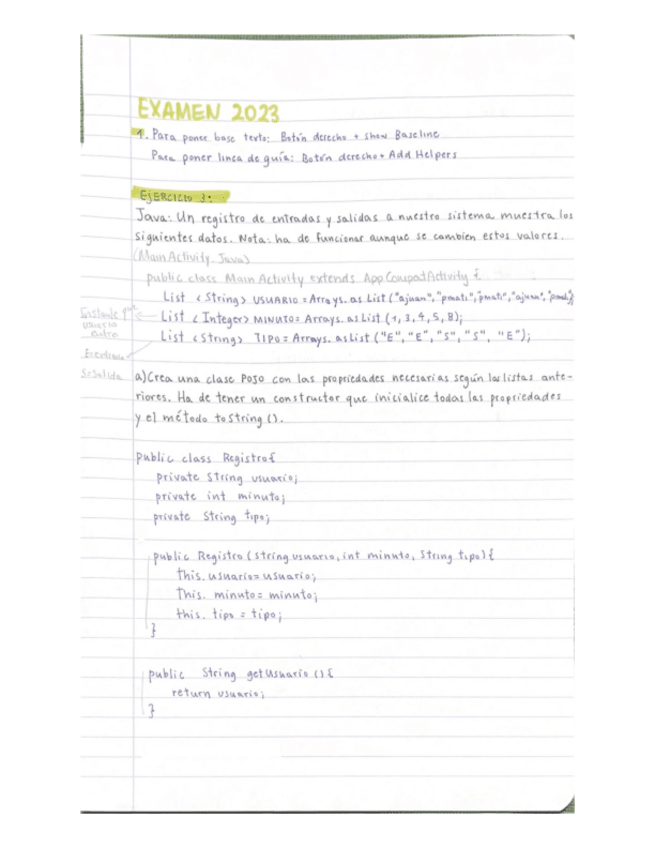 EXAMEN 2023
1. Para poner base texto: Botón derecho + Show Baseline
Para poner linea de guía: Botón derecho + Add Helpers
EJERCICIO 3:
Java: Un registro de entradas y salidas a nuestro sistema muestra los
siguientes datos. Nota: ha de funcionar aunque se cambien estos valores.
(MainActivity.Java)
public class MainActivity extends AppCompatActivity {
List <String> USUARIO = Arrays.asList ("ajuan", "pmati", "pmati", "ajuan", "pmati");
List <Integer> MINUTO = Arrays.asList (1, 3, 4, 5, 8);
List <String> TIPO = Arrays.asList ("E", "E", "S", "S", "E");
usuario
entra
E=entrada
S=Salida
a) Crea una clase POJO con las propriedades necesarias según las listas ante-
riores. Ha de tener un constructor que inicialice todas las propriedades
y el método toString ().
public class Registro {
private String usuario;
private int minuto;
private String tipo;
public Registro (String usuario, int minuto, String tipo) {
this. usuario = usuario;
this. minuto = minuto;
this. tipo = tipo;
}
public String getUsuario () {
return usuario;
}